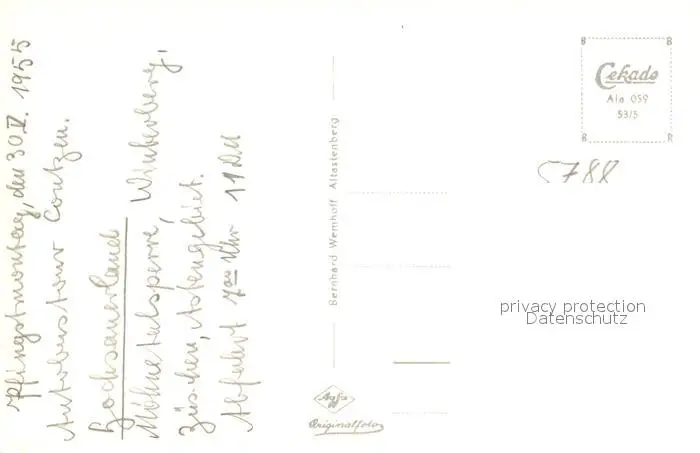 Pfingstmontag, den 30.V. 1955
Autobustour Contzen.
Hochsauerland
Möhnetalsperre, Winterberg,
Züschen, Astengebiet.
Abfahrt 7 Uhr 11 DM
Bernhard Wemhoff Altastenberg
B B
Cekade
Ala 059
53/5
B R
5788
privacy protection
Datenschutz
Agfa
Originalfoto